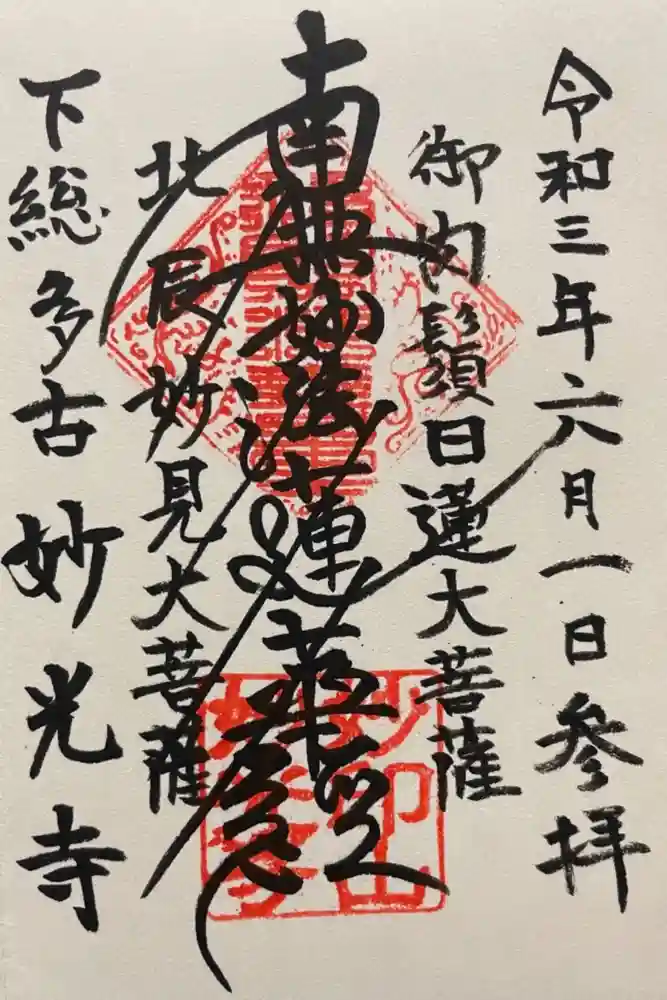 令和三年六月一日参拝
御内鬚日蓮大菩薩
南無妙法蓮華経
北辰妙見大菩薩
下総多古妙光寺